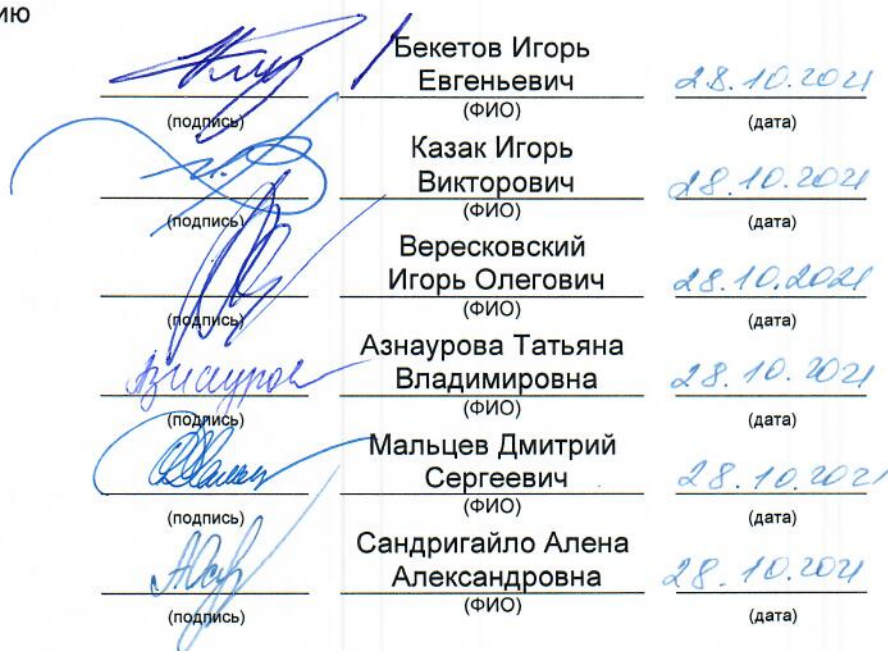 ию
Бекетов Игорь
Евгеньевич 28.10.2021
(подпись) (ФИО) (дата)
Казак Игорь
Викторович 28.10.2021
(подпись) (ФИО) (дата)
Вересковский
Игорь Олегович 28.10.2021
(подпись) (ФИО) (дата)
Азнаурова Татьяна
Азнауров Владимировна 28.10.2021
(подпись) (ФИО) (дата)
Мальцев Дмитрий
Сергеевич 28.10.2021
(подпись) (ФИО) (дата)
Сандригайло Алена
Александровна 28.10.2021
(подпись) (ФИО) (дата)